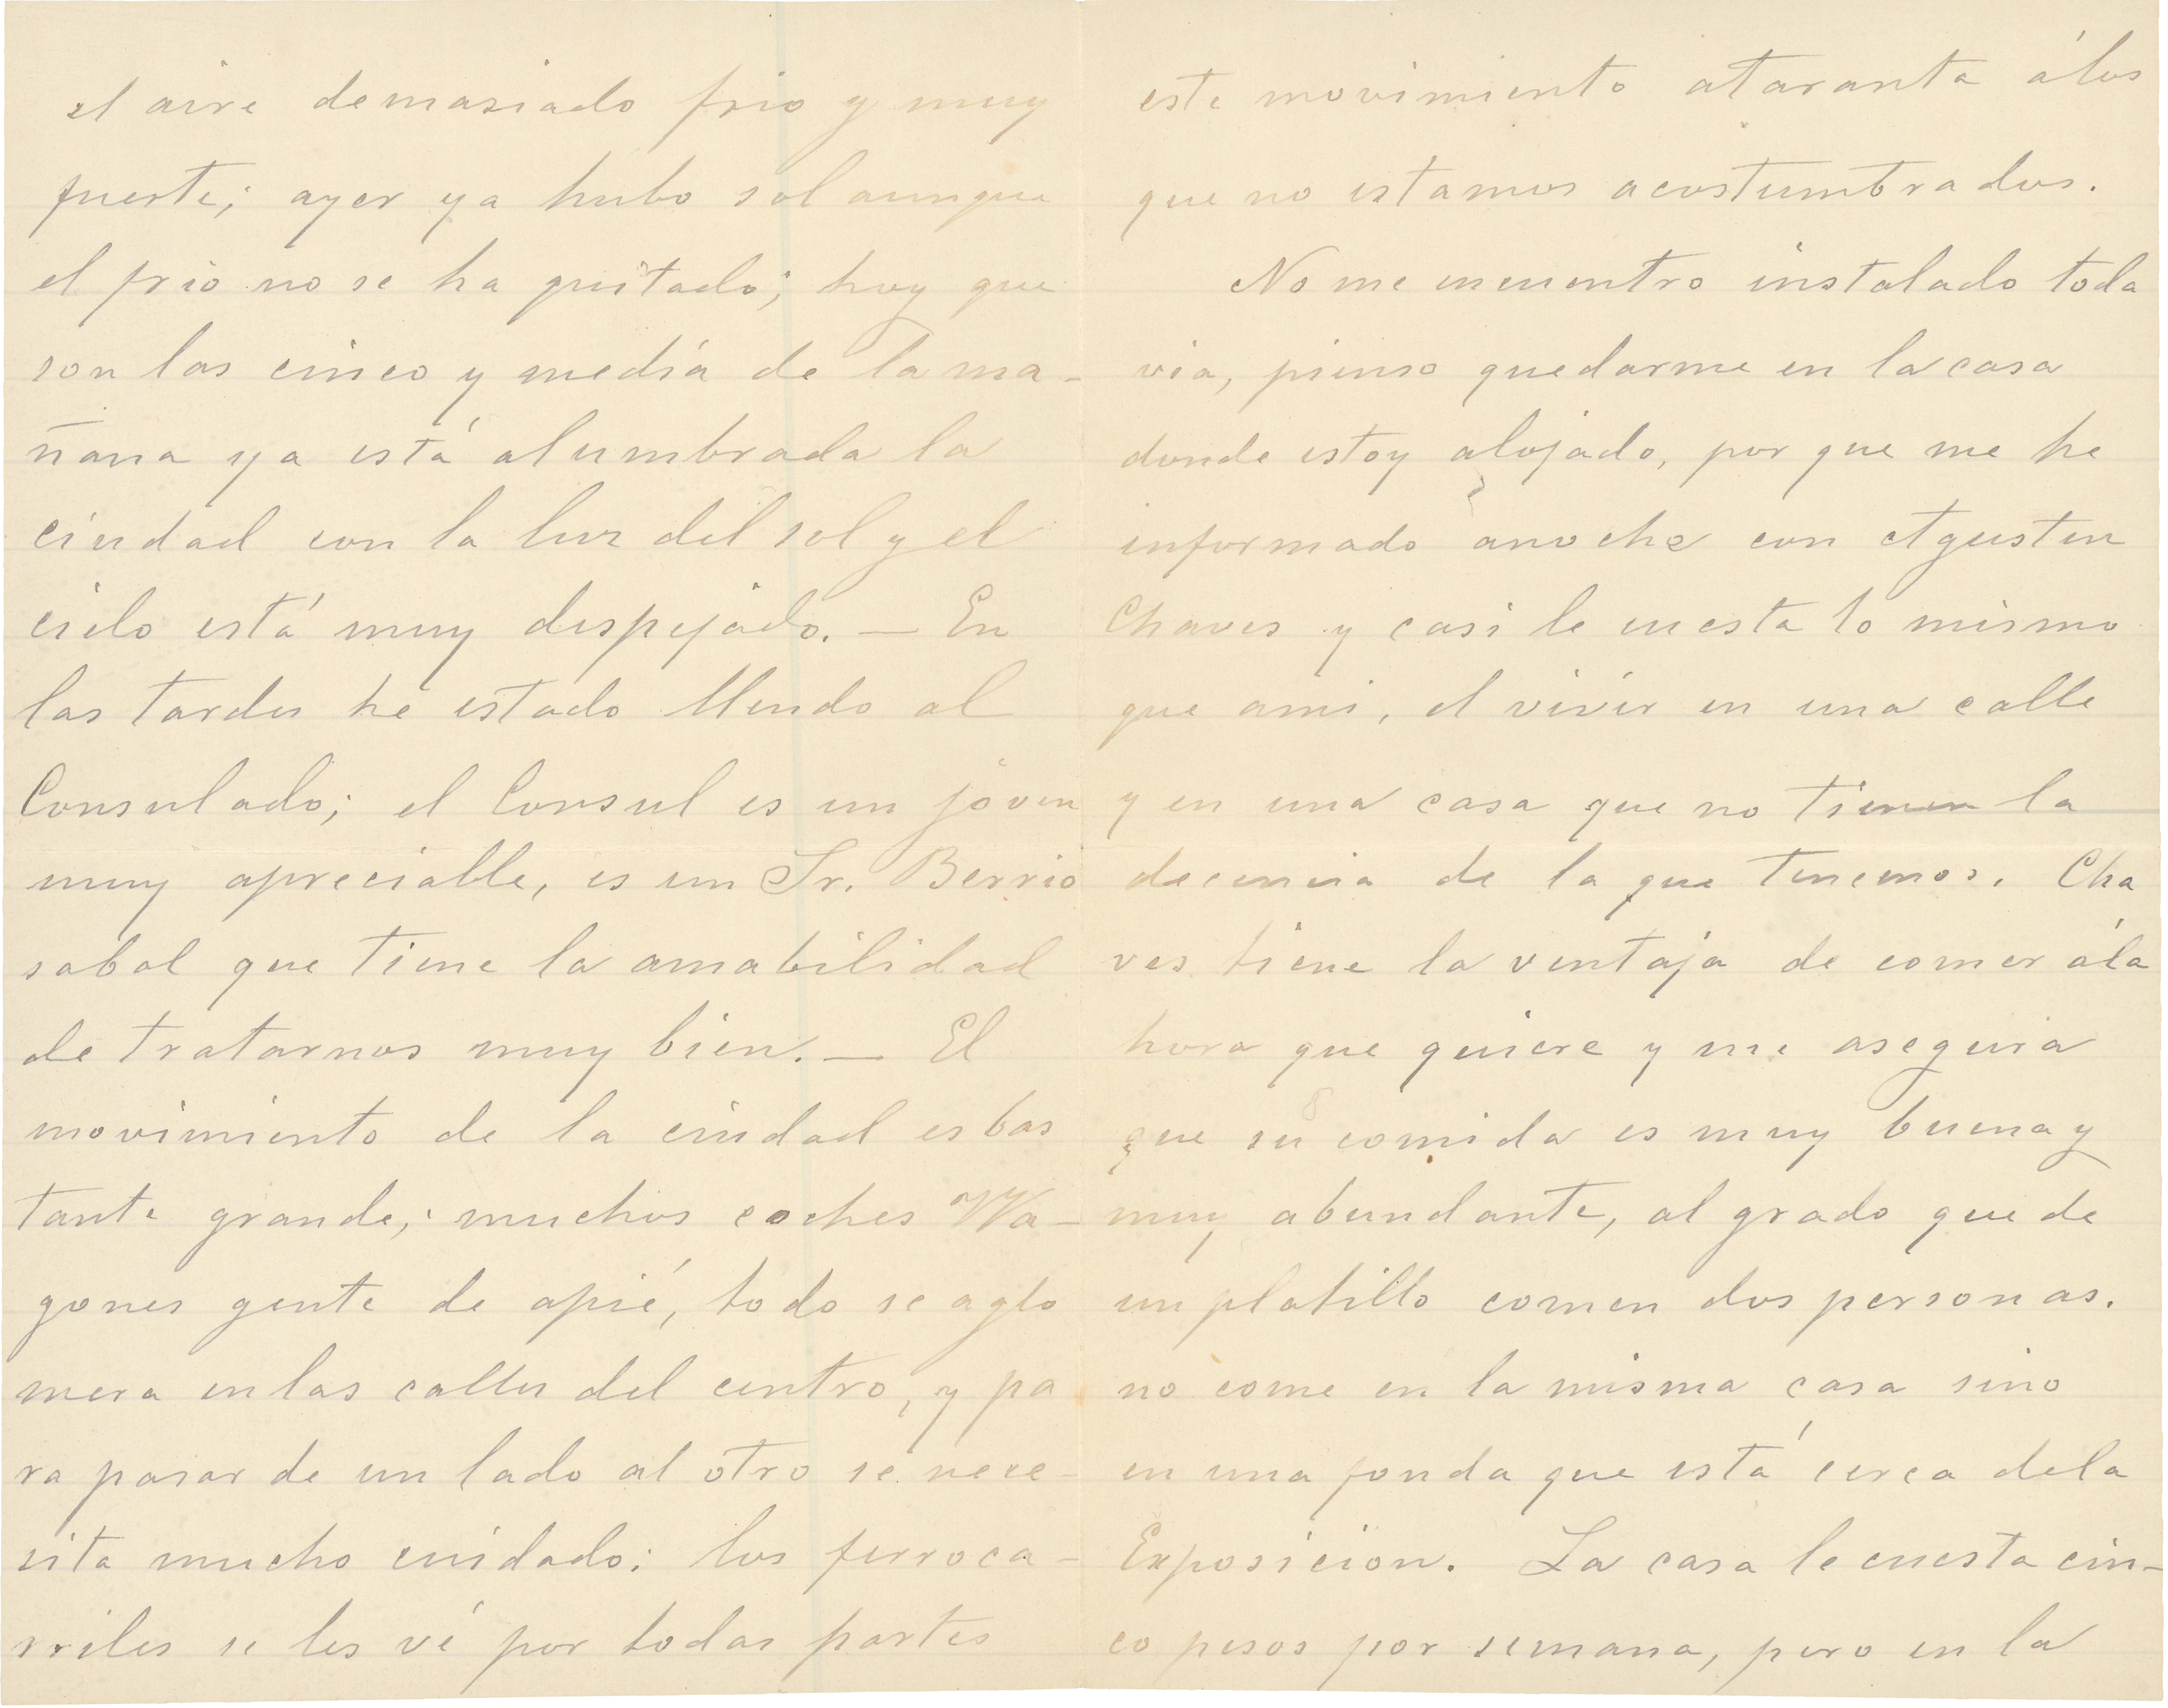 el aire demasiado frio y muy
fuerte; ayer ya hubo sol aunque
el frio no se ha quitado; hoy que
son las cinco y media de la ma-
ñana ya está alumbrada la
ciudad con la luz del sol y el
cielo está muy despejado. — En
las tardes he estado llendo al
Consulado; el Consul es un jóven
muy apreciable, es un Sr. Berrio
sabal que tiene la amabilidad
de tratarnos muy bien. — El
movimiento de la ciudad es bas
tante grande; muchos coches Wa-
gones gente de apié, todo se aglo
mera en las calles del centro, y pa
ra pasar de un lado al otro se nece-
sita mucho cuidado: los ferroca-
rriles se les vé por todas partes
este movimiento ataranta álos
que no estamos acostumbrados.
No me encuentro instalado toda
via, pienso quedarme en la casa
donde estoy alojado, por que me he
informado anoche con Agustin
Chaves y casi le cuesta lo mismo
que ami, el vivir en una calle
y en una casa que no tienen la
decencia de la que tenemos. Cha
ves tiene la ventaja de comer ála
hora que quiere y me asegura
que su comida es muy buena y
muy abundante, al grado que de
un platillo comen dos personas.
no come en la misma casa sino
en una fonda que está cerca dela
Exposicion. La casa le cuesta cin-
co pesos por semana, pero en la